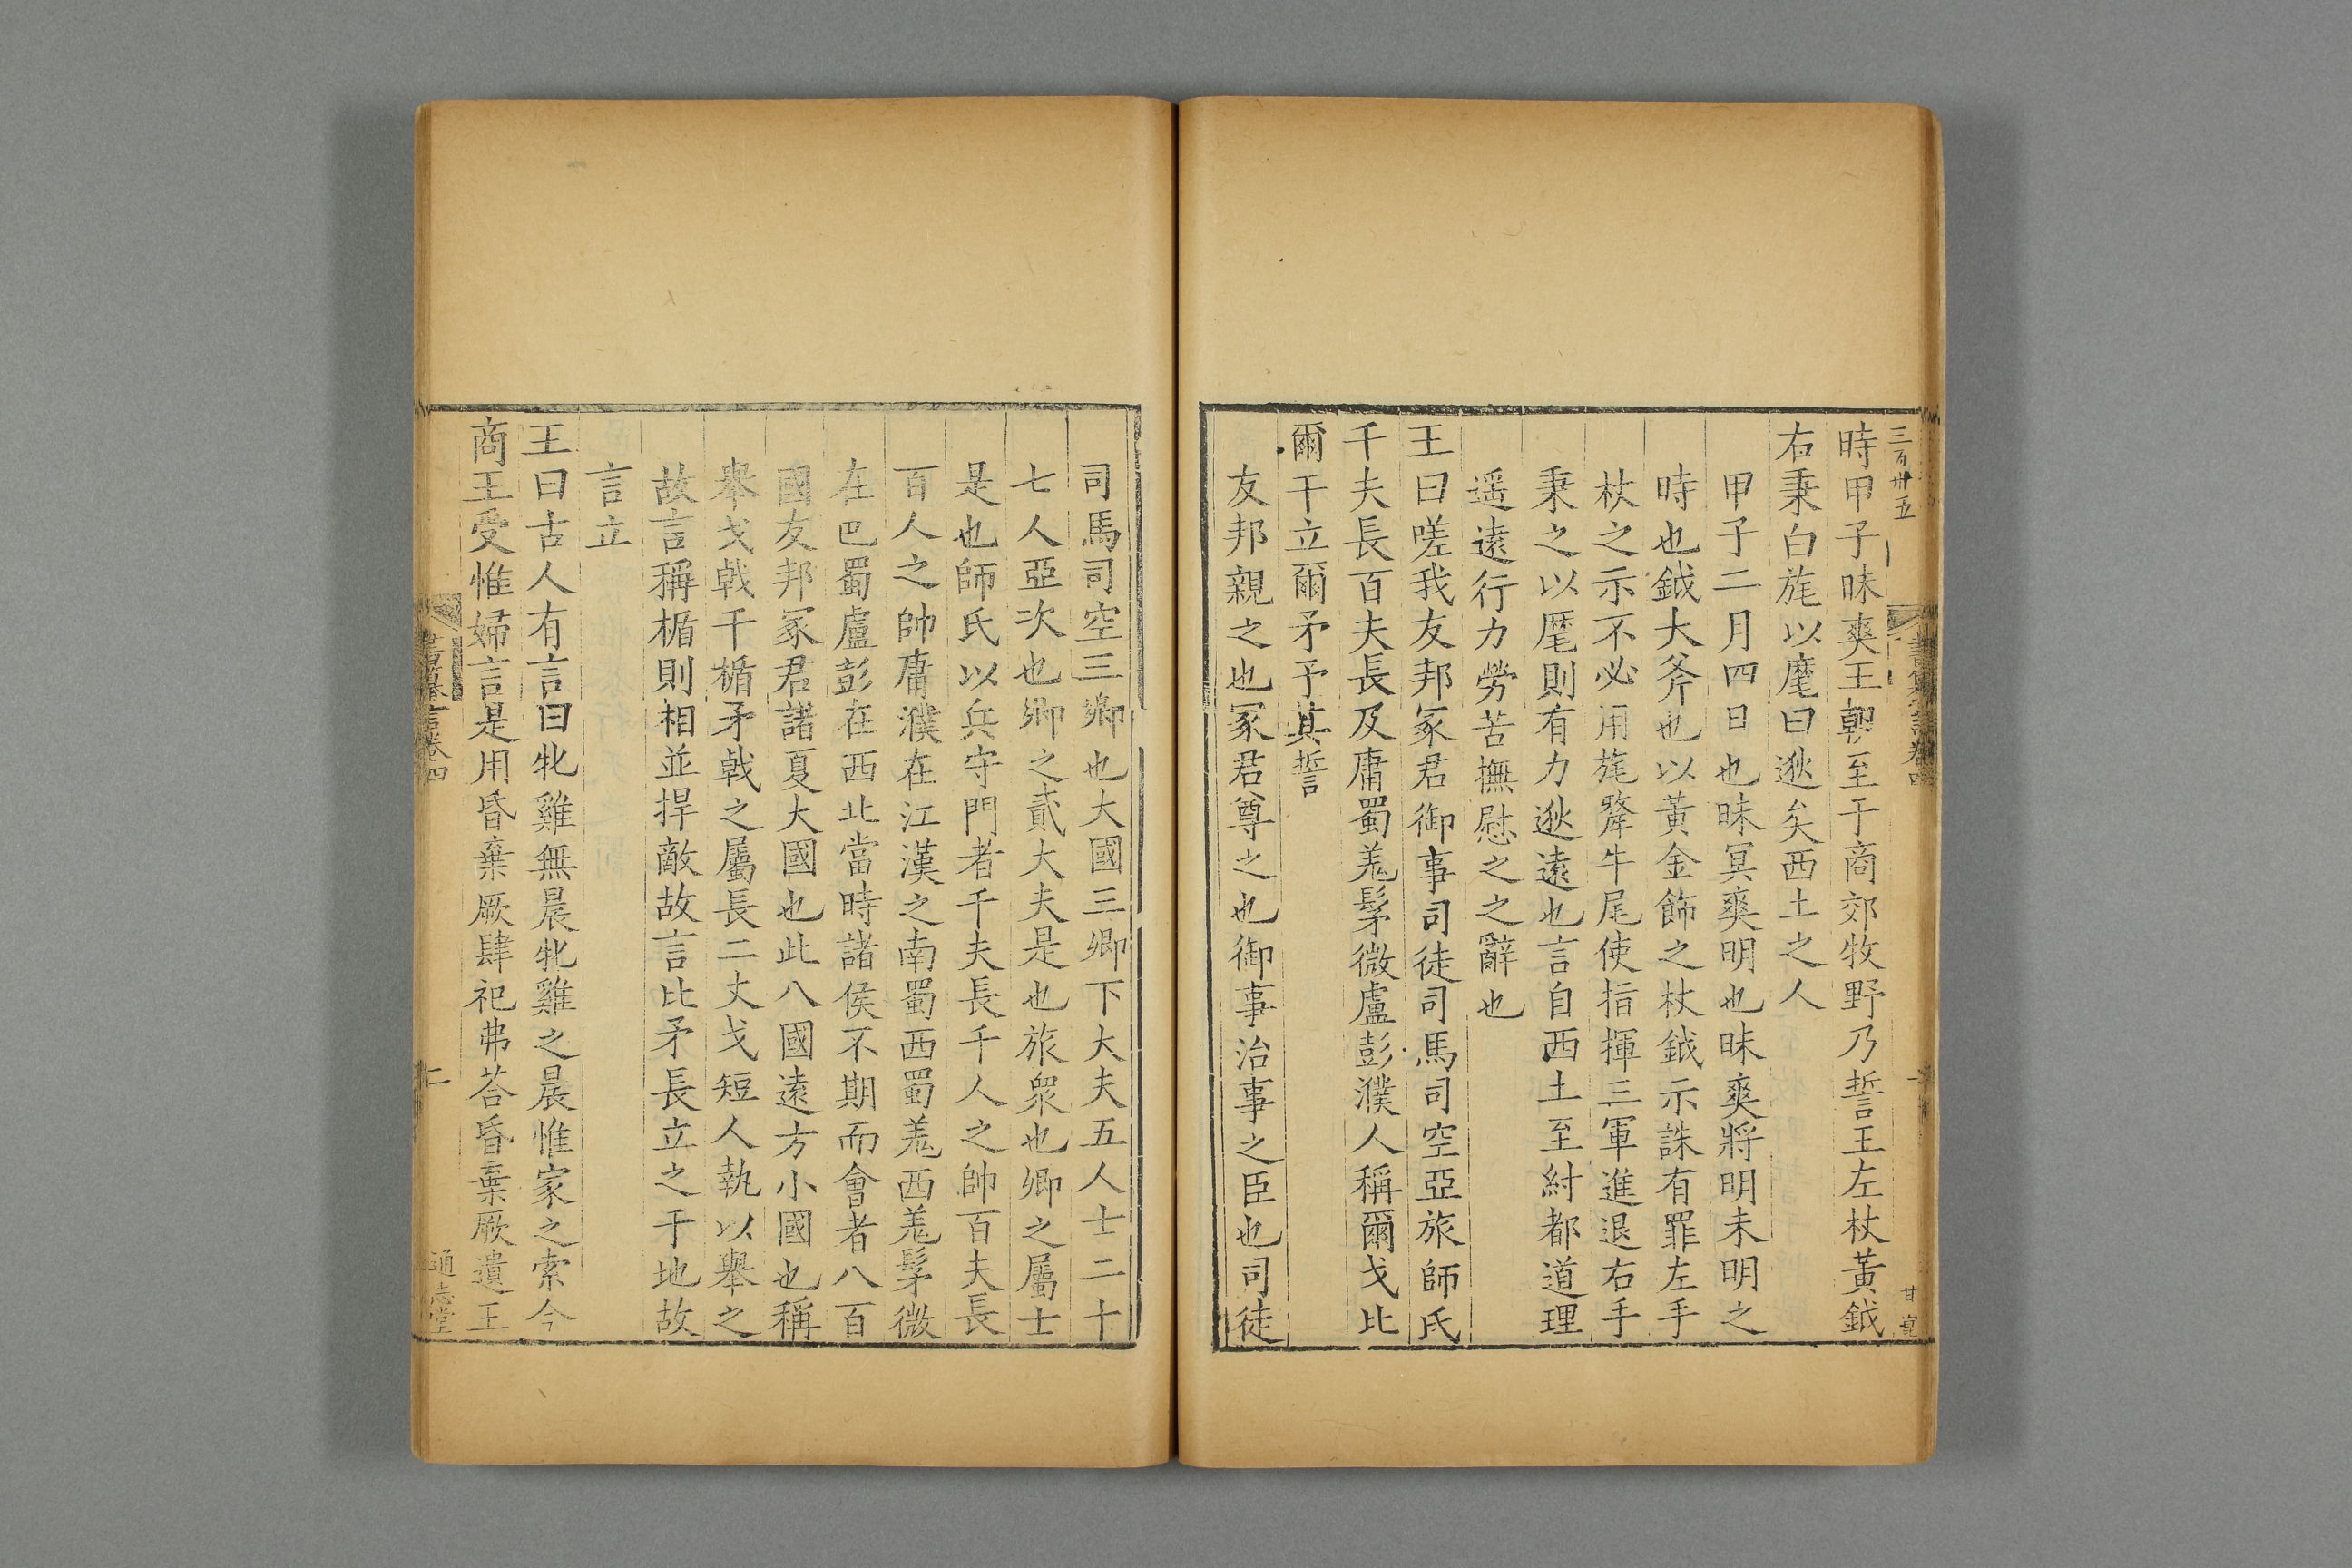 三百卅五
時甲子昧爽王朝至于商郊牧野乃誓王左杖黃鉞
右秉白旄以麾曰逖矣西土之人
甲子二月四日也昧冥爽明也昧爽將明未明之
時也鉞大斧也以黃金飾之杖鉞示誅有罪左手
杖之示不必用旄犛牛尾使指揮三軍進退右手
秉之以麾則有力逖遠也言自西土至紂都道理
遥遠行力勞苦撫慰之之辭也
王曰嗟我友邦冢君御事司徒司馬司空亞旅師氏
千夫長百夫長及庸蜀羌髳微盧彭濮人稱爾戈比
爾干立爾矛予其誓
友邦親之也冢君尊之也御事治事之臣也司徒
司馬司空三卿也大國三卿下大夫五人士二十
七人亞次也卿之貳大夫是也旅衆也卿之屬士
是也師氏以兵守門者千夫長千人之帥百夫長
百人之帥庸濮在江漢之南蜀西蜀羌西羌髳微
在巴蜀盧彭在西北當時諸侯不期而會者八百
國友邦冢君諸夏大國也此八國遠方小國也稱
舉戈戟干楯矛戟之屬長二丈戈短人執以舉之
故言稱楯則相並捍敵故言比矛長立之于地故
言立
王曰古人有言曰牝雞無晨牝雞之晨惟家之索今
商王受惟婦言是用昏棄厥肆祀弗荅昏棄厥遺王
卷四
二
通志堂